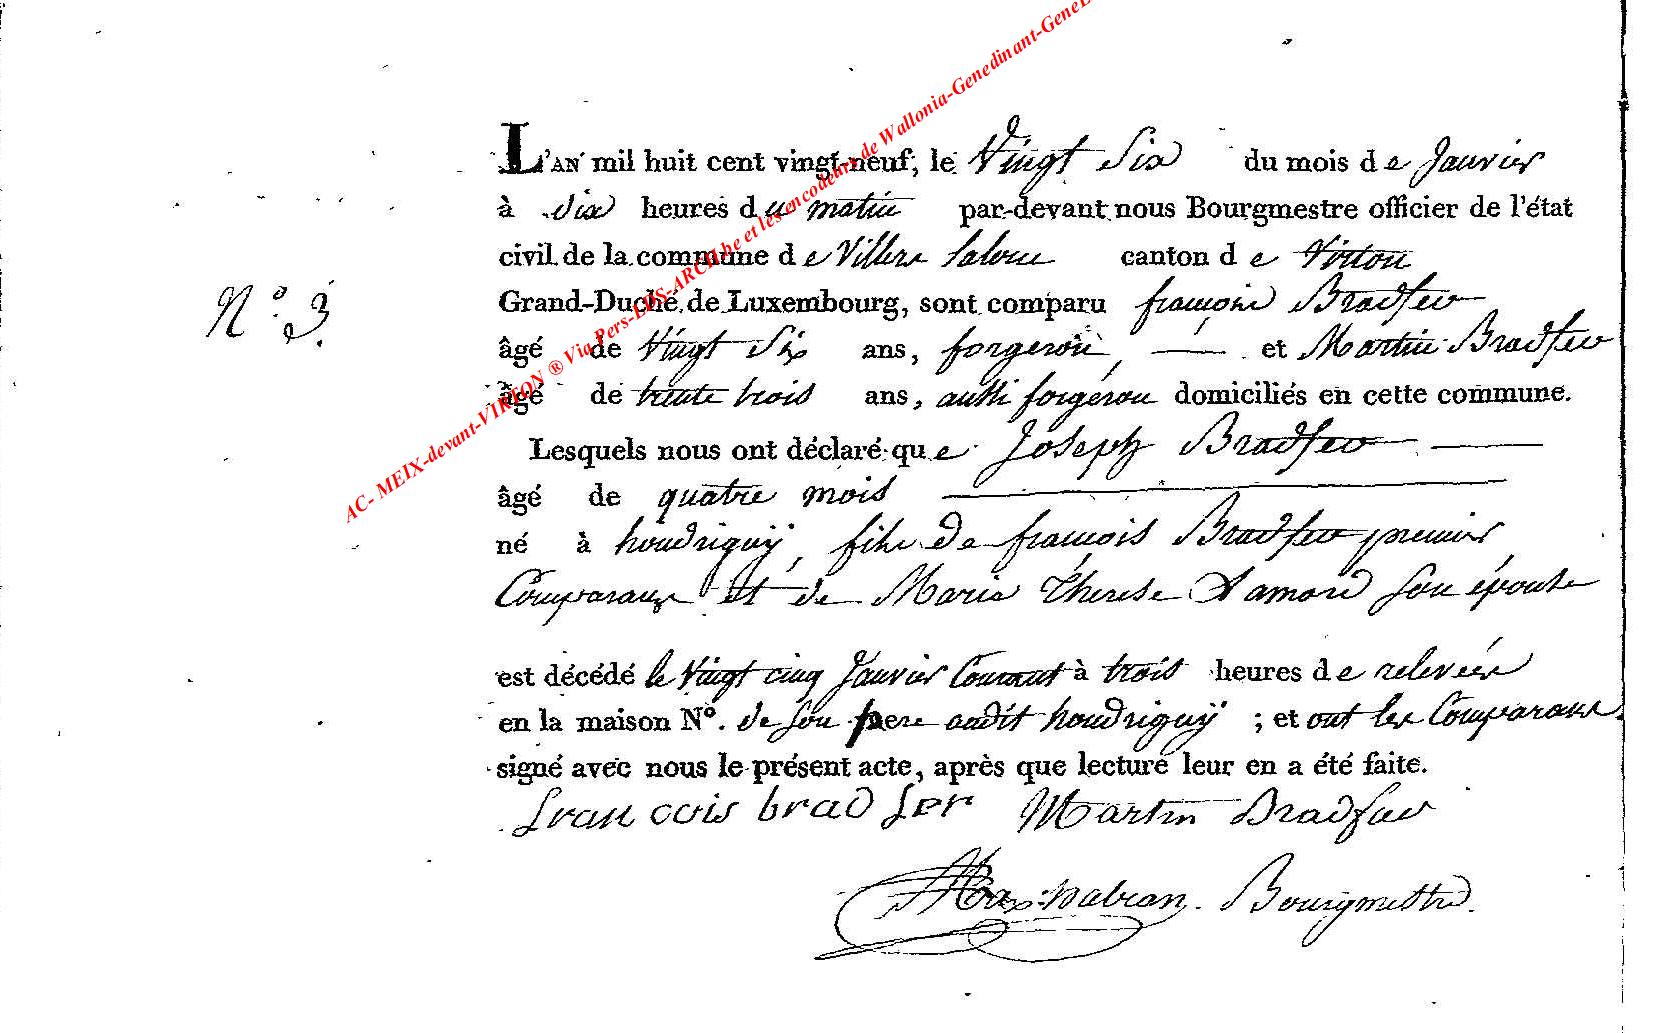 AC- MEIX-devant-VIRTON ® Via Pers-LDS-ARCHbe et les encodeurs de Wallonia-Genedinant-GeneL
L'AN mil huit cent vingt-neuf, le Vingt Six du mois de Janvier
à dix heures du matin par-devant nous Bourgmestre officier de l'état
civil de la commune de Villers laloue canton de Virton
N.° 3.
Grand-Duché de Luxembourg, sont comparu françois Bradfer
âgé de Vingt Six ans, forgeron, — et Martin Bradfer
âgé de trente trois ans, aussi forgeron domiciliés en cette commune.
Lesquels nous ont déclaré que Joseph Bradfer —
âgé de quatre mois —
né à houdriguÿ, fils de françois Bradfer premier
Comparant et de Marie Therese Lamord son épouse
est décédé le Vingt cinq Janvier Courant à trois heures de relevée
en la maison N°. de son pere audit houdriguÿ ; et ont les Comparans
signé avec nous le présent acte, après que lecture leur en a été faite.
francois bradfer Martin Bradfer
Bourgmestre.